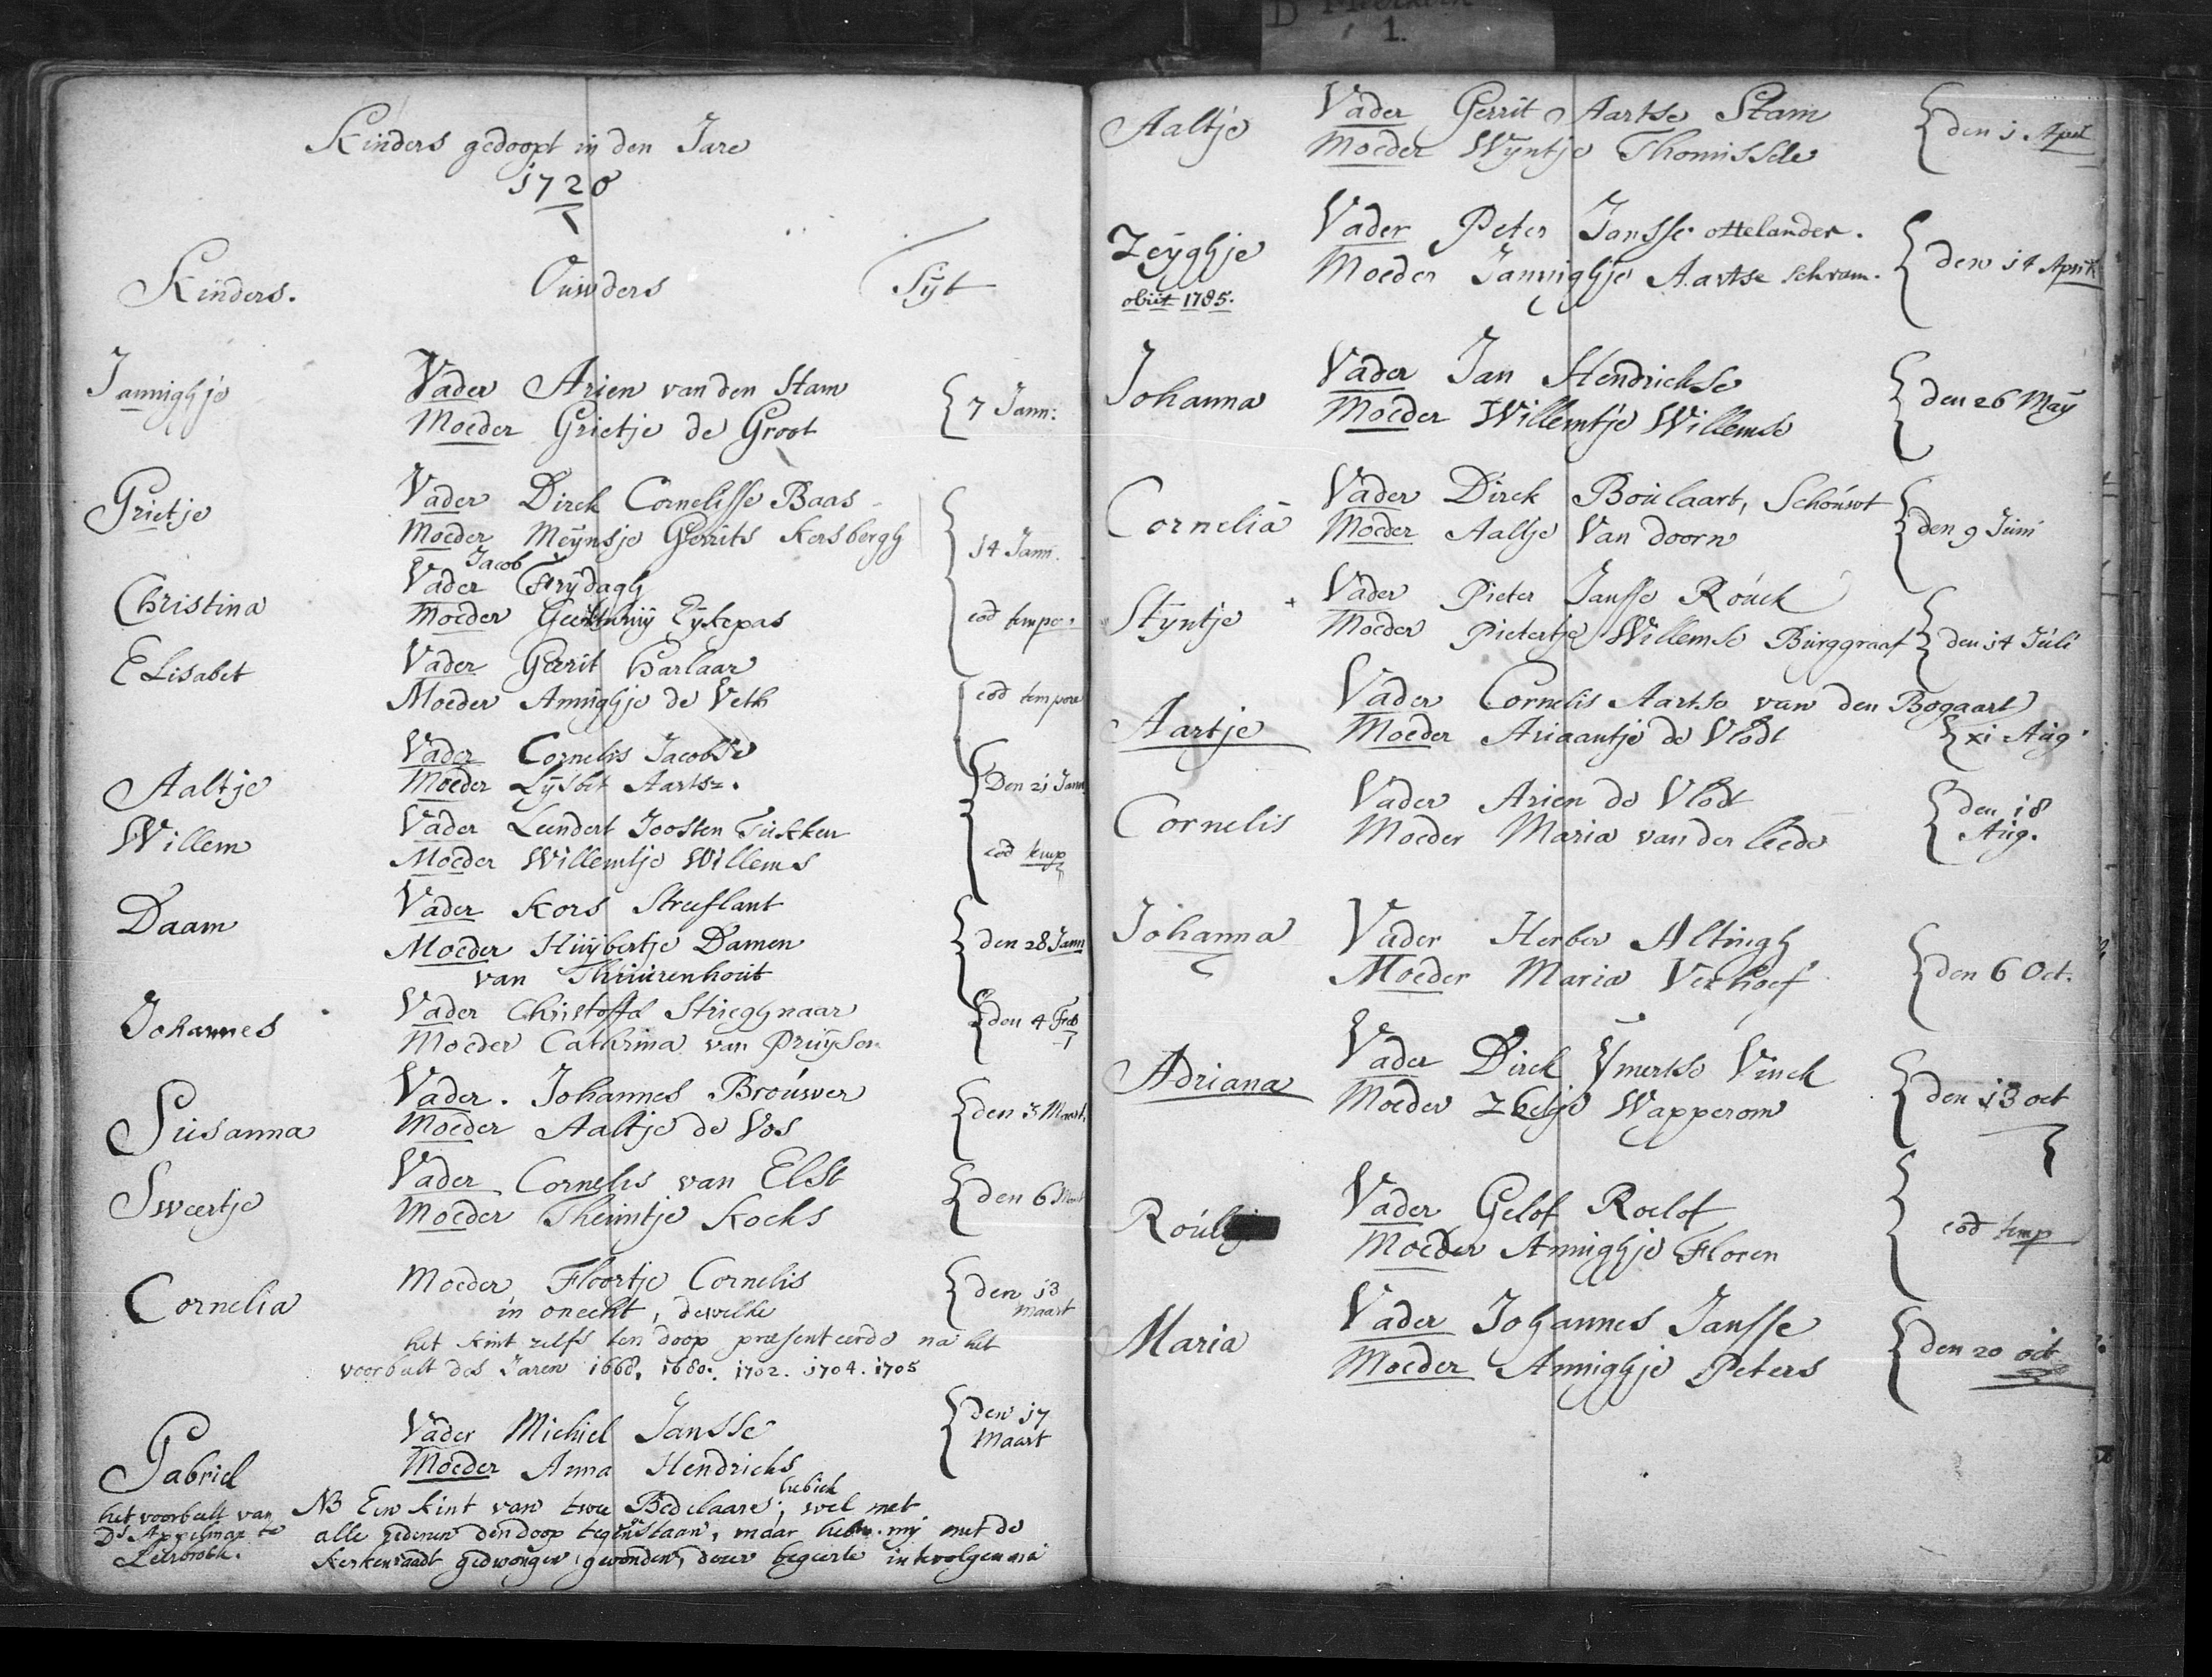 1.
Kinders gedoopt in den Jare
1720
Kinders. Ouwders Tyt
Jannighje Vader Arien van den Ham
Moeder Grietje de Groot
7 Jann:
Grietje Vader Dirck Cornelisse Baas
Moeder Meÿnsje Gerrits Kersbergh
14 Jann.
Jacob
Christina Vader Frÿdagh
Moeder Eÿkepas
eod tempo.
Elisabet Vader Gerrit Harlaar
Moeder Annighje de Veth
eod tempore
Aaltje Vader Cornelis Jacobse
Moeder Lÿsbet Aartsz.
Den 21 Jann
Willem Vader Leendert Joosten Tukker
Moeder Willemtje Willems
eod temp
Daam Vader Kors Streeflant
Moeder Huÿbertje Damen
van Thuurenhout
den 28 Jann
Johannes Vader Christoffel Strieghnaar
Moeder Cathrina van Pruÿsen
den 4 Feb
Susanna Vader. Johannes Brouwer
Moeder Aaltje de Vos
den 3 Maart.
Sweertje Vader Cornelis van Elst
Moeder Theuntje Kocks
den 6 Maart
Cornelia Moeder Floortje Cornelis
in onecht, dewelke
den 13
maart
het kint zelfs ten doop presenteerde na het
voorbeelt des Jaren 1668. 1680. 1702. 1704. 1705
Gabriel Vader Michiel Jansse
Moeder Anna Hendricks
den 17
Maart
NB Een kint van twee Bedelaars; hebick wel met
alle redenen den doop tegenstaan, maar mij met de
kerkenraadt gedwongen gevonden, deser begeerte in te volgen na
het voorbeelt van
Ds Appelman te
Leerbroek.
Aaltje Vader Gerrit Aartse Stam
Moeder Wÿntje Thomisse
den 1. April
Zeÿghje Vader Peter Jansse ottelander.
Moeder Jannighje Aartse schram.
den 14 April
obiit 1785.
Johanna Vader Jan Hendrickse
Moeder Willemtje Willemse
den 26 Maÿ
Cornelia Vader Dirck Boulaart, Schouwt
Moeder Aaltje Van doorn
den 9 Juni
Stÿntje + Vader Pieter Jansse Rouck
Moeder Pietertje Willemse Burggraaf
den 14 Juli
Aartje Vader Cornelis Aartse van den Bogaart
Moeder Ariaantje de Vlodt
xi Aug.
Cornelis Vader Arien de Vlodt
Moeder Maria van der leede
den 18
Aug.
Johanna Vader Herber Altingh
Moeder Maria Verhoef
den 6 Oct.
Adriana Vader Dirck Ymertse Vinck
Moeder Wapperom
den 13 oct
Vader Gelof Roelof
Moeder Annighje Floren
eod temp
Maria Vader Johannes Jansse
Moeder Annighje Peters
den 20 oct